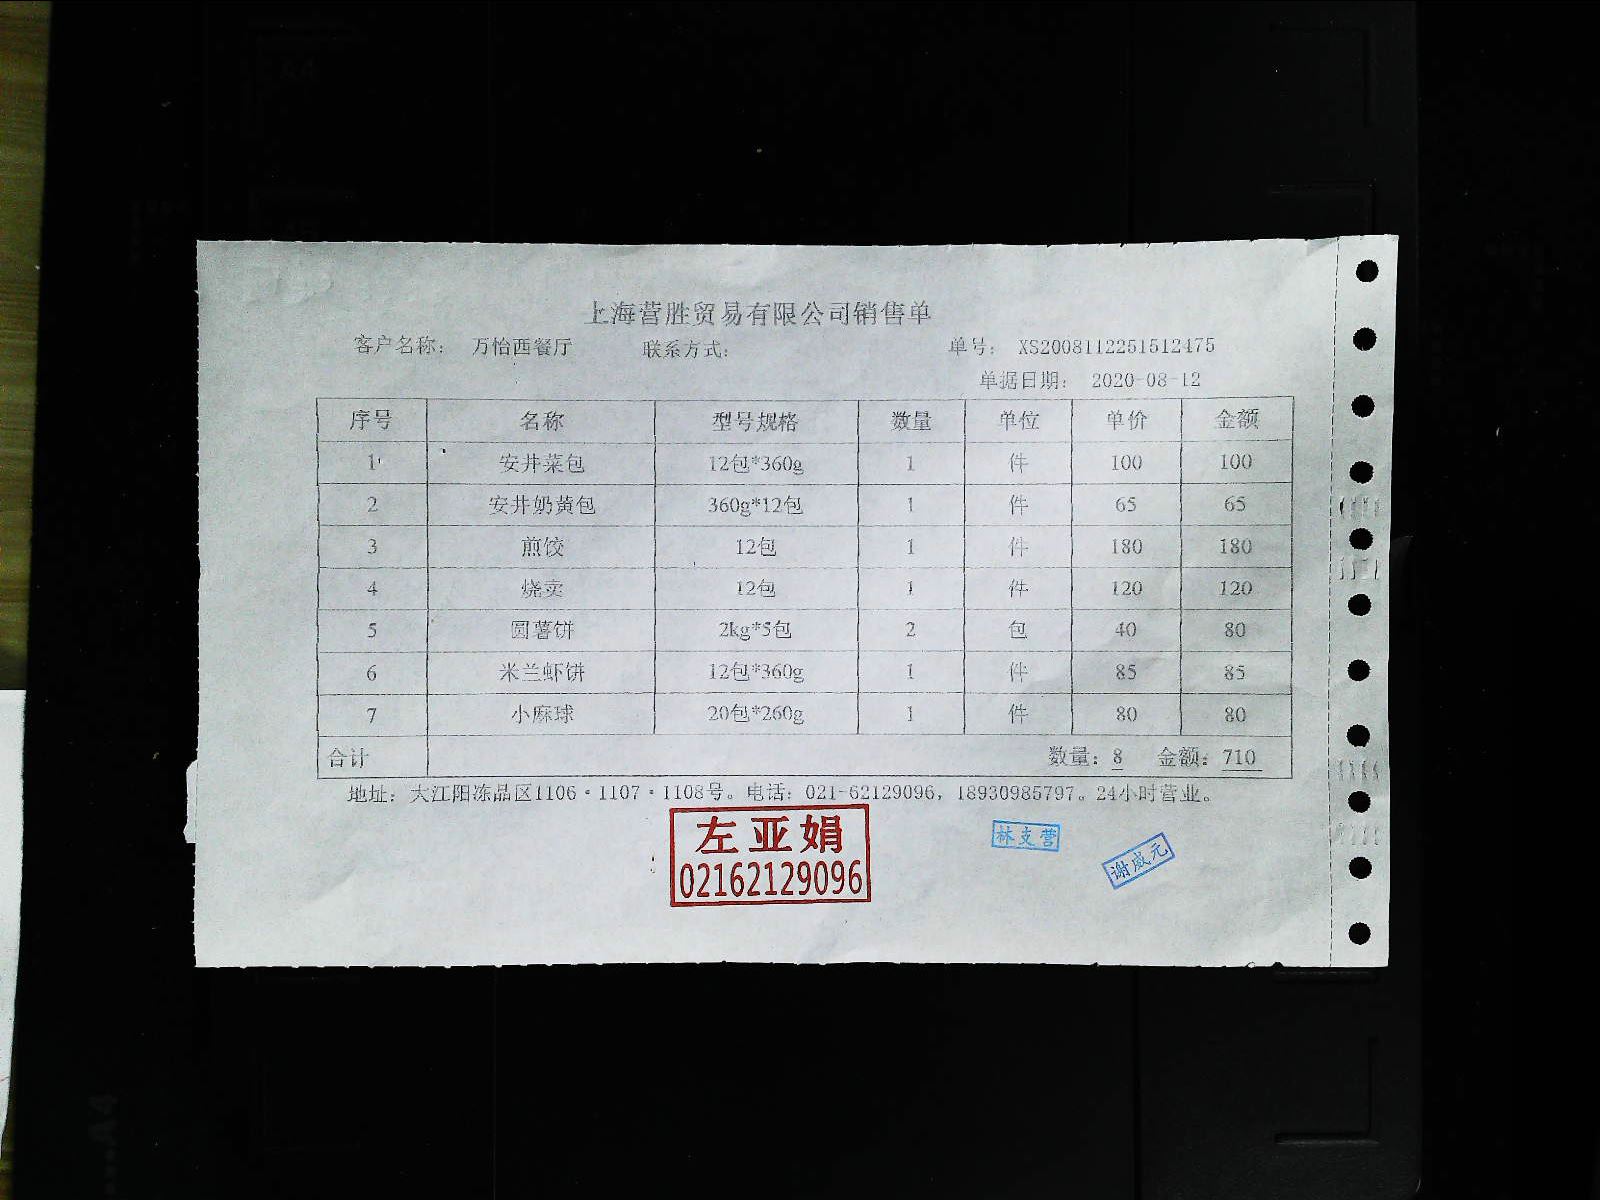 上海营胜贸易有限公司销售单
客户名称： 万怡西餐厅 联系方式： 单号： XS2008112251512475
单据日期： 2020-08-12
序号 名称 型号规格 数量 单位 单价 金额
1 安井菜包 12包*360g 1 件 100 100
2 安井奶黄包 360g*12包 1 件 65 65
3 煎饺 12包 1 件 180 180
4 烧卖 12包 1 件 120 120
5 圆薯饼 2kg*5包 2 包 40 80
6 米兰虾饼 12包*360g 1 件 85 85
7 小麻球 20包*260g 1 件 80 80
合计 数量：8 金额：710
地址：大江阳冻品区1106·1107·1108号。电话：021-62129096，18930985797。24小时营业。
左亚娟
02162129096
林支营
谢威元
A4